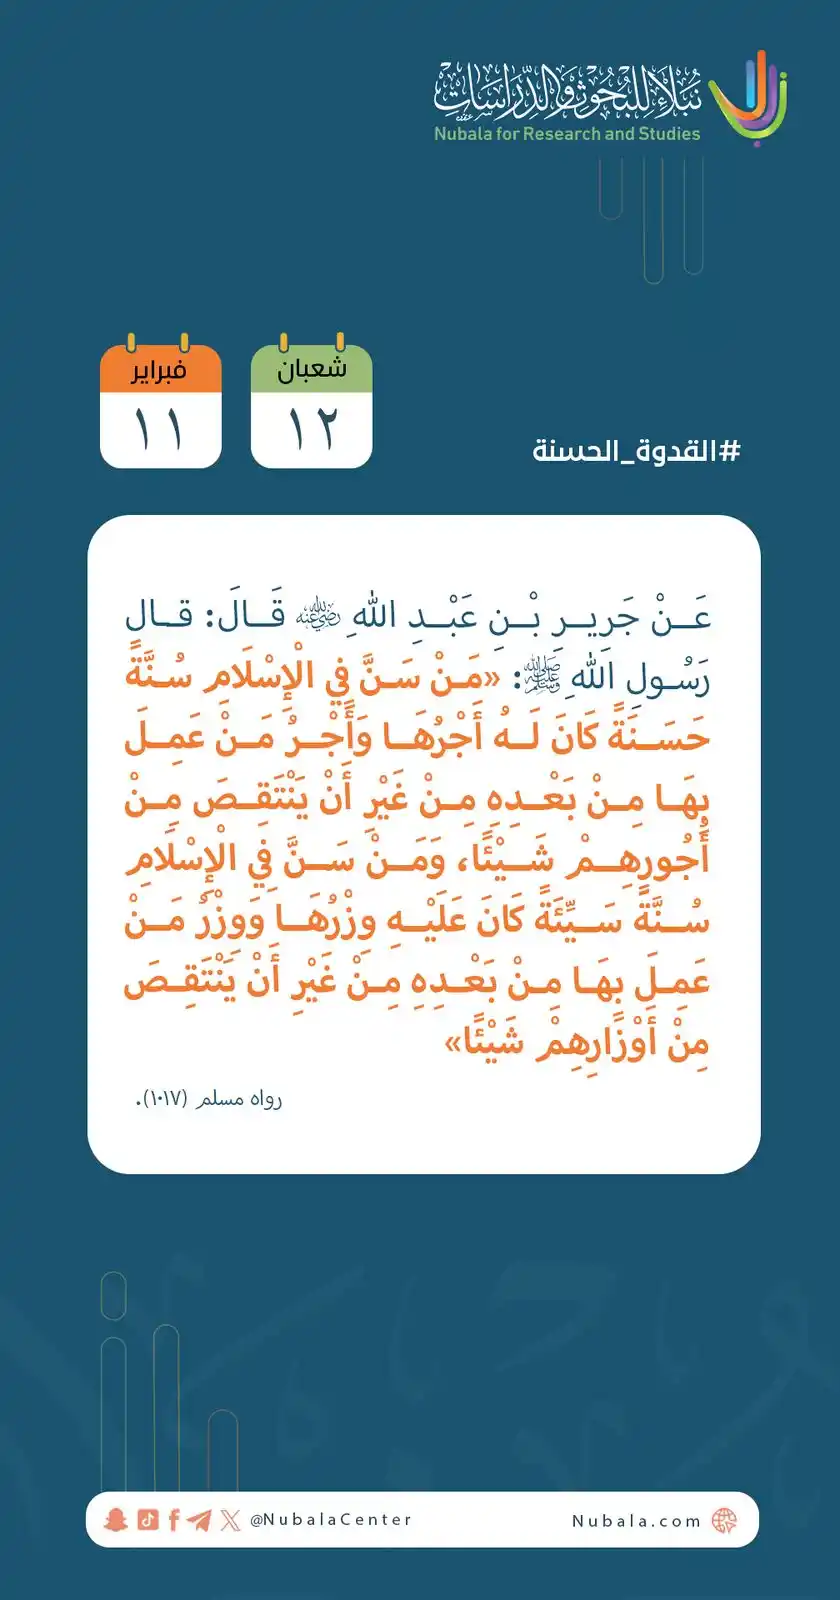 نبلاء للبحوث والدراسات
Nubala for Research and Studies
شعبان
١٢
فبراير
١١
#القدوة_الحسنة
عَـنْ جَريـرِ بْـنِ عَبْـدِ اللهِ رضي الله عنه قَـالَ: قـال
رَسُـولِ اللهِ ﷺ: «مَـنْ سَـنَّ فِي الْإِسْلَامِ سُـنَّةً
حَسَـنَةً كَانَ لَـهُ أَجْرُهَـا وَأَجْـرُ مَـنْ عَمِـلَ
بِهَـا مِـنْ بَعْـدِهِ مِـنْ غَيْرِ أَنْ يَنْتَقِـصَ مِـنْ
أُجُورِهِـمْ شَـيْئًا، وَمَـنْ سَـنَّ فِي الْإِسْلَامِ
سُـنَّةً سَـيِّئَةً كَانَ عَلَيْـهِ وِزْرُهَـا وَوِزْرُ مَـنْ
عَمِـلَ بِهَـا مِـنْ بَعْـدِهِ مِـنْ غَيْرِ أَنْ يَنْتَقِـصَ
مِنْ أَوْزَارِهِمْ شَيْئًا»
رواه مسلم (١٠١٧).
@NubalaCenter
Nubala.com